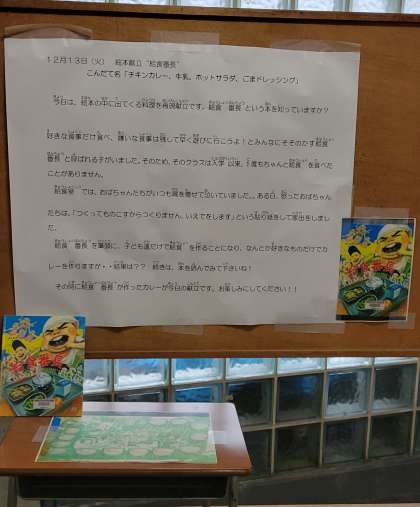 12月13日（火）　絵本献立 “給食番長”
こんだて名「チキンカレー、牛乳、ホットサラダ、ごまドレッシング」
今日は、絵本の中に出てくる料理を再現献立です。給食 番長 という本を知っていますか？
好きな食事だけ食べ、嫌いな食事は残して早く遊びに行こうよ！とみんなにそそのかす給食
番長 と呼ばれる子がいました。そのため、そのクラスは入学 以来、1度もちゃんと給食 を食べた
ことがありません。
給食室 では、おばちゃんたちがいつも肩を寄せて泣いていました。。ある日、怒ったおばちゃん
たちは、「つくってものこすからつくりません。いえでをします」という貼り紙をして家出をしまし
た。
給食 番長 を筆頭に、子ども達だけで給食 を作ることになり、なんとか好きなものだけでカ
レーを作りますが・・結果は？？ 続きは、本を読んでみて下さいね！
その時に給食 番長 が作ったカレーが今日の献立です。お楽しみにしてください！！
給食番長
給食番長